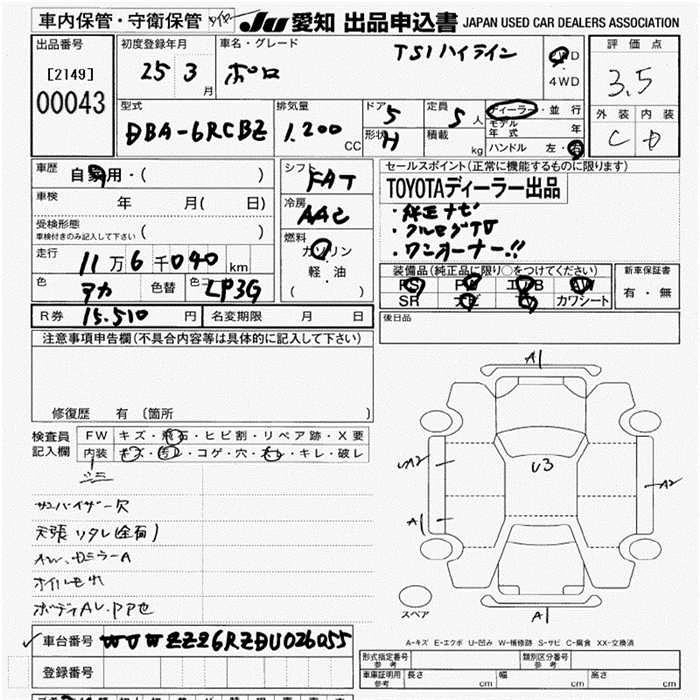 車内保管・守衛保管 JU 愛知 出品申込書 JAPAN USED CAR DEALERS ASSOCIATION
出品番号
[2149]
00043
初度登録年月
25 3 月
車名・グレード
ポロ
TSIハイライン
2WD
・
4WD
評価点
3.5
外装 内装
C D
型式
DBA-6RCBZ
排気量
1.200 CC
ドア 5
形状 H
定員 5 人
積載 kg
ディーラー・並行
モデル年式 年
ハンドル 左・右
車歴 自家用・( )
車検 年 月( 日)
受検形態
車検付きのみ記入して下さい ( )
走行 11万6千040km
色 アカ 色替 色コ LP3G
シフト FAT
冷房 AAC
燃料
ガソリン
軽・油
( )
セールスポイント(正常に機能するものに限ります)
TOYOTAディーラー出品
・純正ナビ
・フルセグTV
・ワンオーナー!!
装備品(純正品に限り○をつけてください)
PS PW エアB AW
SR ナビ TV カワシート
新車保証書
有・無
R券 15.510 円 名変期限 月 日
後日品
注意事項申告欄(不具合内容等は具体的に記入して下さい)
修復歴 有 〔箇所 〕
検査員記入欄
FW キズ・飛石・ヒビ割・リペア跡・X要
内装 キズ・汚レ・コゲ・穴・スレ・キレ・破レ
シミ
サンバイザー欠
天張リタレ(全面)
AW、ドミラーA
オイルモレ
ボデーAU、PP色
A1
UA2
U3
A2
A1
A1
スペア
A-キズ E-エクボ U-凹み W-補修跡 S-サビ C-腐食 XX-交換済
車台番号 WVWZZZ6RZDU026055
登録番号
形式指定番号
参考
類別区分番号
参考
車庫証明用
参考
長さ cm 幅 cm 高さ cm